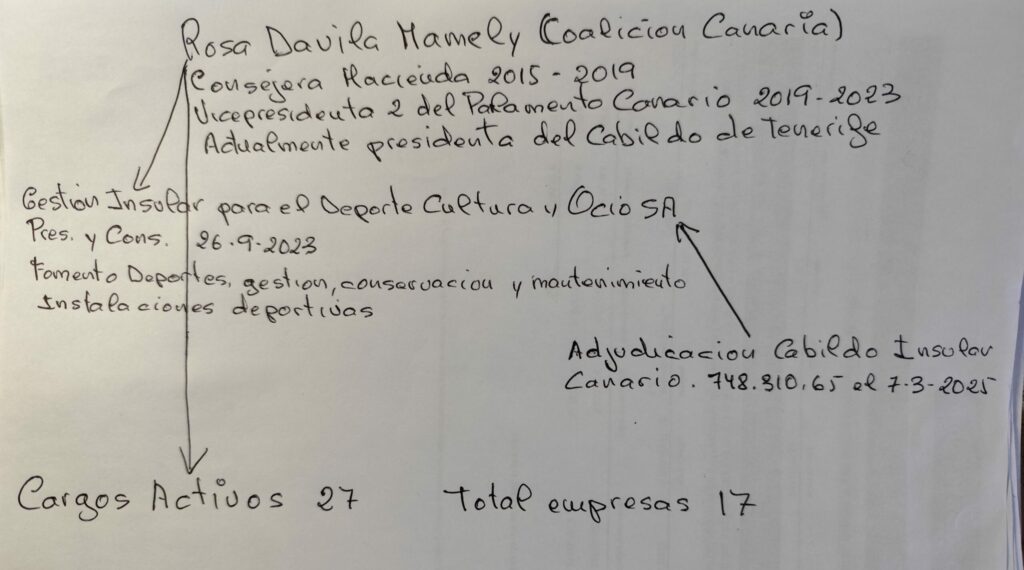 Rosa Davila Mamely (Coalicion Canaria)
Consejera Hacienda 2015 - 2019
Vicepresidenta 2 del Palamento Canario 2019-2023
Actualmente presidenta del Cabildo de Tenerife
Gestion Insular para el Deporte Cultura y Ocio SA
Pres. y Cons. 26.9-2023
Fomento Deportes, gestion, conservacion y mantenimiento
Instalaciones deportivas
Adjudicacion Cabildo Insular
Canario. 748.310,65 el 7-3-2025
Cargos Activos 27 Total empresas 17